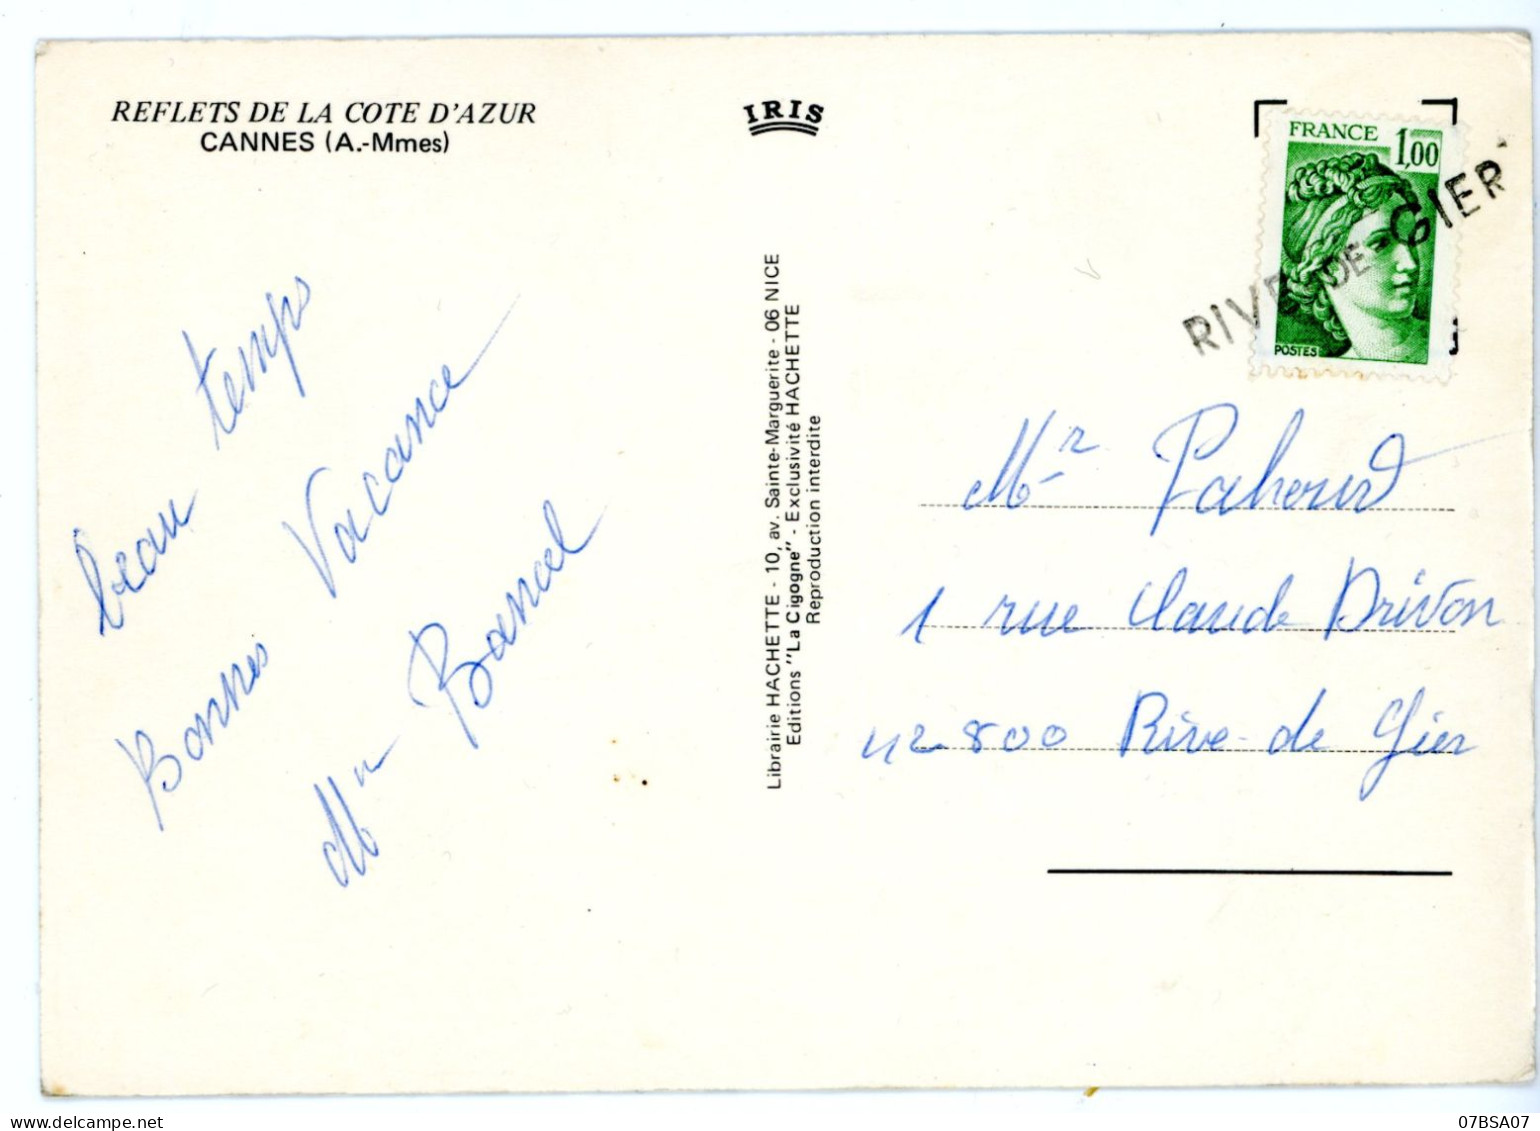 REFLETS DE LA COTE D'AZUR
CANNES (A.-Mmes)
IRIS
FRANCE 1,00
POSTES
RIVE-DE-GIER
beau temps
Bonnes Vacance
Bancel
Librairie HACHETTE - 10, av. Sainte-Marguerite - 06 NICE
Editions "La Cigogne" - Exclusivité HACHETTE
Reproduction interdite
Mr
1 rue Claude Drivon
42800 Rive-de Gier
07BSA07